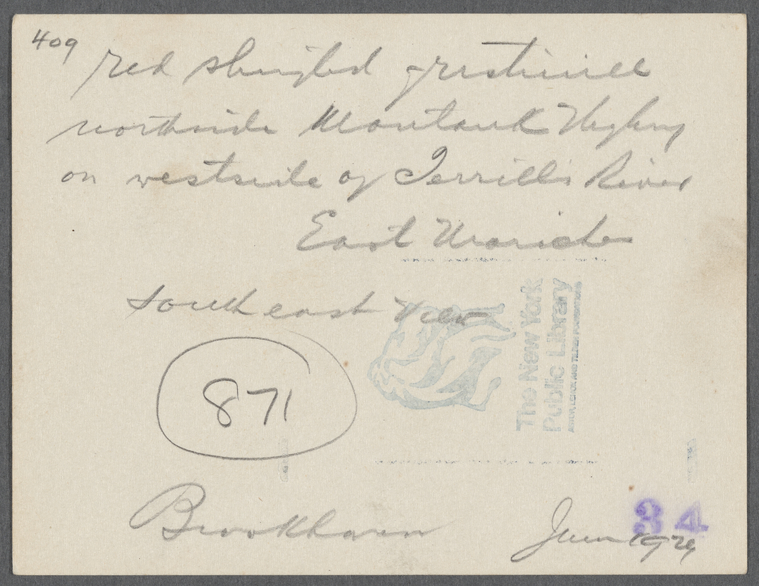 409
red shingled gristmill
northside Montauk Hyghwy
on westside of Terrills River
East Moriches
south east View
871
The New York
Public Library
ASTOR, LENOX AND TILDEN FOUNDATIONS
Brookhaven
34
June 1924